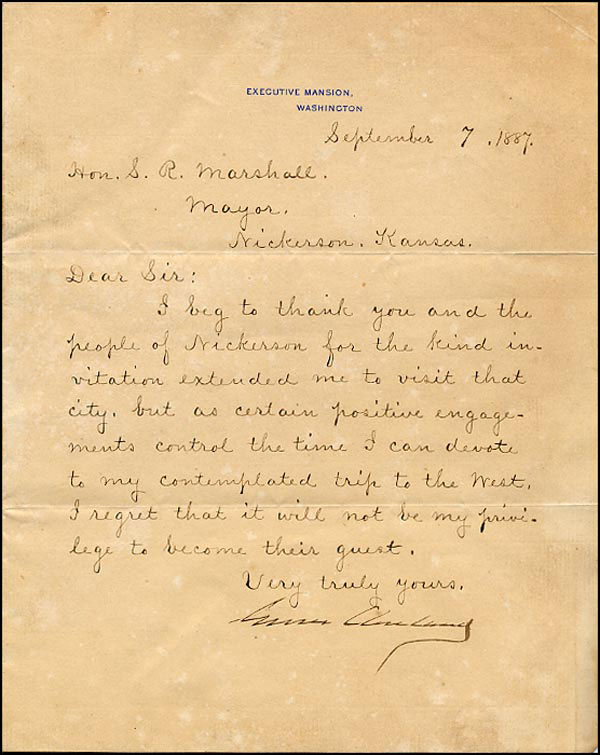 EXECUTIVE MANSION,
WASHINGTON
September 7, 1887.
Hon. S. R. Marshall.
Mayor.
Nickerson. Kansas.
Dear Sir:
I beg to thank you and the
people of Nickerson for the kind in-
vitation extended me to visit that
city. but as certain positive engage-
ments control the time I can devote
to my contemplated trip to the West.
I regret that it will not be my privi-
lege to become their guest.
Very truly yours.
Grover Cleveland